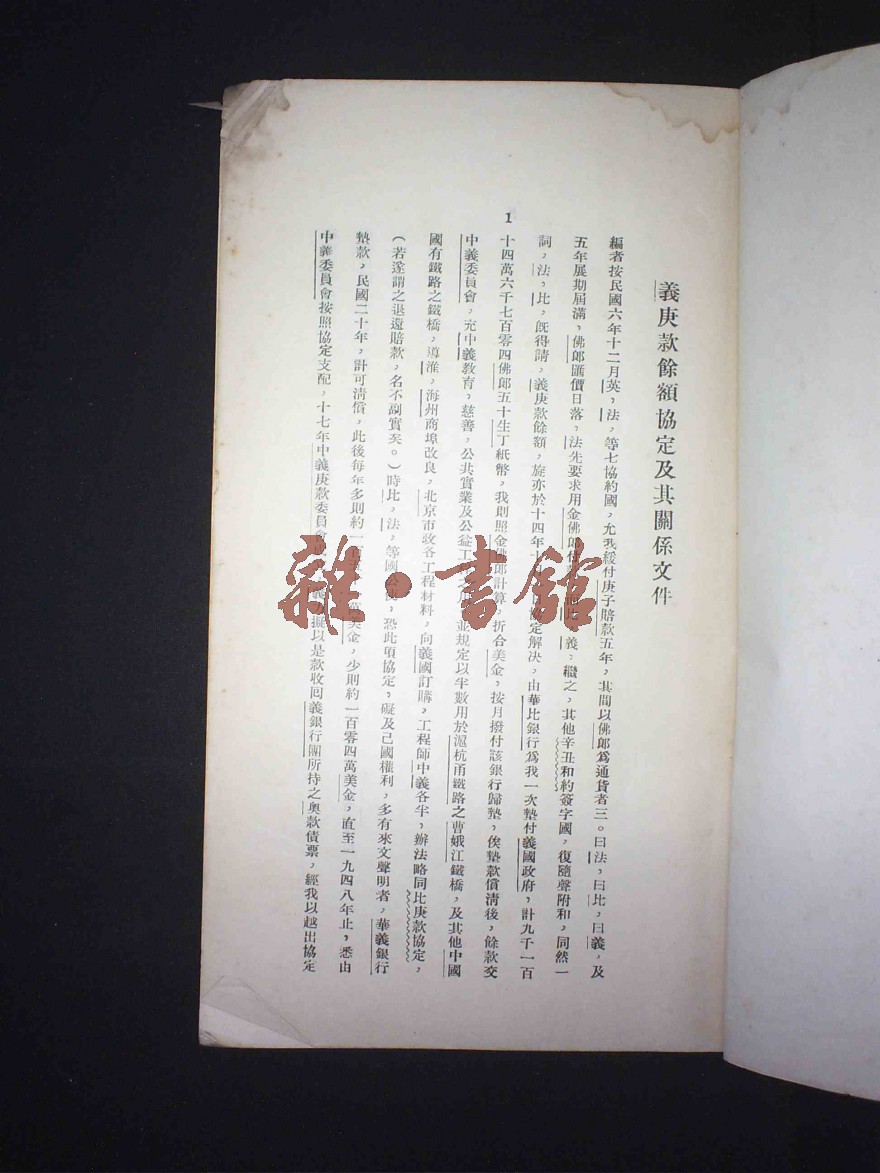 義庚款餘額協定及其關係文件
編者按民國六年十二月英，法，等七協約國，允我緩付庚子賠款五年，其間以佛郎爲通貨者三。曰法，曰比，曰義，及
五年展期屆滿，佛郎匯價日落，法先要求用金佛郎付 義，繼之，其他辛丑和約簽字國，復隨聲附和，同然一
詞，法，比，既得請，義庚款餘額，旋亦於十四年十 日協定解決，由華比銀行爲我一次墊付義國政府，計九千一百
十四萬六千七百零四佛郎五十生丁紙幣，我則照金佛郎計算，折合美金，按月撥付該銀行歸墊，俟墊款償清後，餘款交
中義委員會，充中義教育，慈善，公共實業及公益工 之用，並規定以半數用於滬杭甬鐵路之曹娥江鐵橋，及其他中國
國有鐵路之鐵橋，導淮，海州商埠改良，北京市政各工程材料，向義國訂購，工程師中義各半，辦法略同比庚款協定，
（若遂謂之退還賠款，名不副實矣。）時比，法，等國公使，恐此項協定，礙及己國權利，多有來文聲明者，華義銀行
墊款，民國二十年，計可清償，此後每年多則約一百 萬美金，少則約一百零四萬美金，直至一九四八年止，悉由
中義委員會按照協定支配，十七年中義庚款委員會 義方擬以是款收回義銀行團所持之奧款債票，經我以越出協定
1
雜·書館